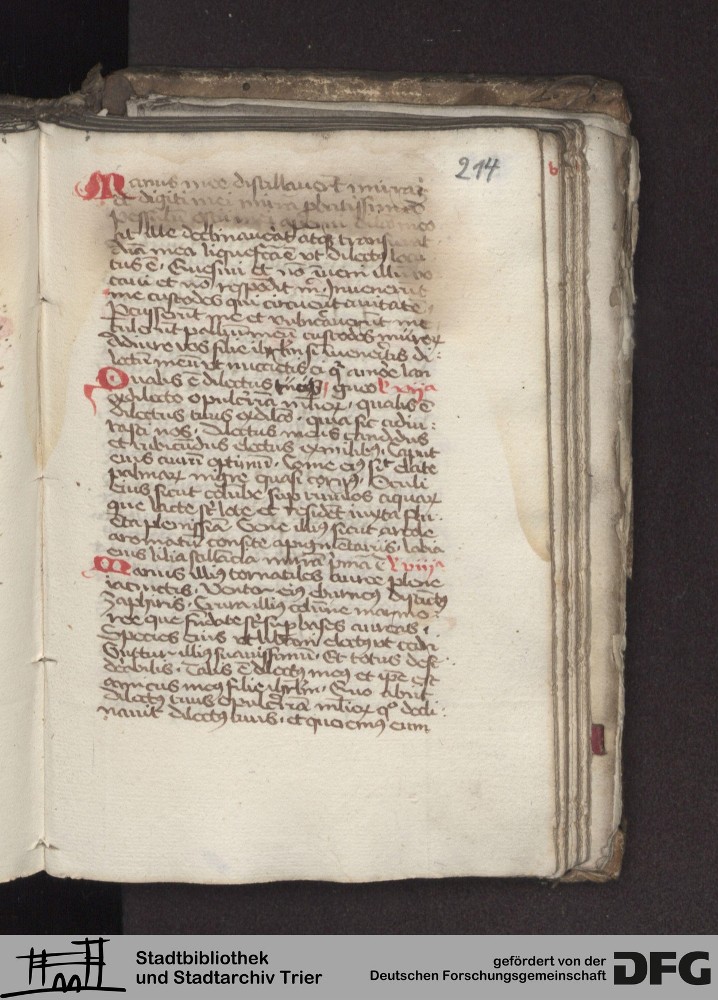 214
Manus mee distillaverūt mirrā
et digiti mei mirra
At ille declinaverat atqȝ transi
Aīa mea liquefcā ē vt dilectꝰ locu
tus ē · Quesivi et nō īveni illū vo
cavi et nō respōdit m · Invenerūt
me custodes qui circūeūt civitatē
ꝑcusserūt me et vulnĕraverūt me
tulerūt palliū meū custodes muroꝝ
Adiuro vos filie ihrlm si īveneritis di
lectū meū vt nūccietis ei qꝛ amore lan
Qualis ē dilectus tuus
ex dilecto o pulcĕrīa ml̄ioꝝ · qualis ē
dilectus tuus ex dilco · quia sic adiu
rasti nos · Dilectus meus candidus
et rubicūdus electus ex milibꝰ · Caput
eius aurū optimū · Come eiꝰ sꝉt elate
palmaꝝ nigre quasi corvꝰ · Oculi
eius sicut colūbe suꝑ rivulos aquaꝝ
que lacte sꝉt lote et resident iuxta flu
eta plenissīa · Gene illiꝰ sicut areole
aromatū consite a pigmētariis · labia
eius lilia stillancia mirrā pīmā
Manus illiꝰ tornatiles auree plene
iacinctis · Venter eiꝰ eburneꝰ distīctꝰ
saphiris · Crura illiꝰ colūne marmo
ree que fūdate sꝉt suꝑ bases aureas ·
Species eius vt libani electꝰ vt cedri
Guttur illiꝰ suavissimū · Et totus desi
derabilis · Talis ē dilectꝰ meꝰ et ip̄e est
amicus meꝰ filie ihrlm · Quo abiit
dilectꝰ tuus o pulcĕrīa ml̄ioꝝ qͦ decli
navit dilectꝰ tuus · et queremꝰ eum
Stadtbibliothek
und Stadtarchiv Trier
gefördert von der
Deutschen Forschungsgemeinschaft
DFG